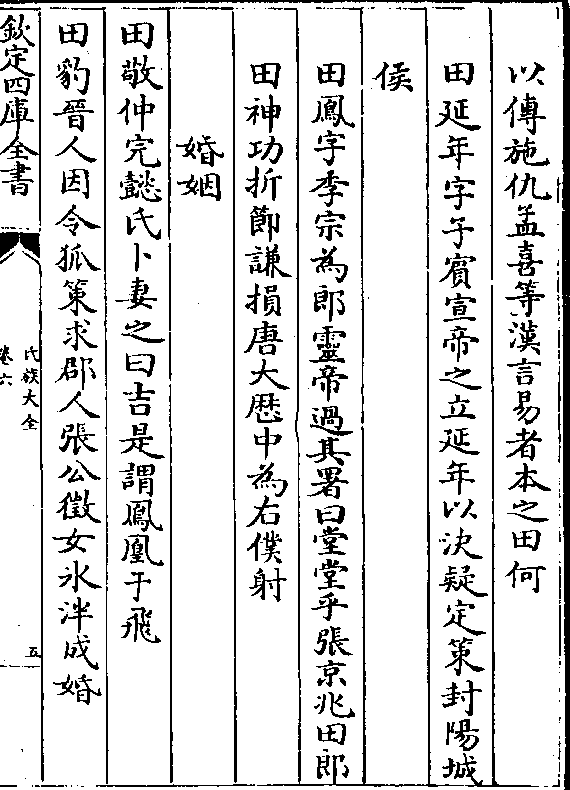 以傳施仇孟喜等漢言易者本之田何
田延年字子賓宣帝之立延年以決疑定策封陽城
侯
田鳳字季宗為郎靈帝過其署曰堂堂乎張京兆田郎
田神功折節謙損唐大歴中為右僕射
婚姻
田敬仲完懿氏卜妻之曰吉是謂鳳凰于飛
田豹晉人因令狐策求郡人張公徵女氷泮成婚
欽定四庫全書
氏族大全
卷六
五